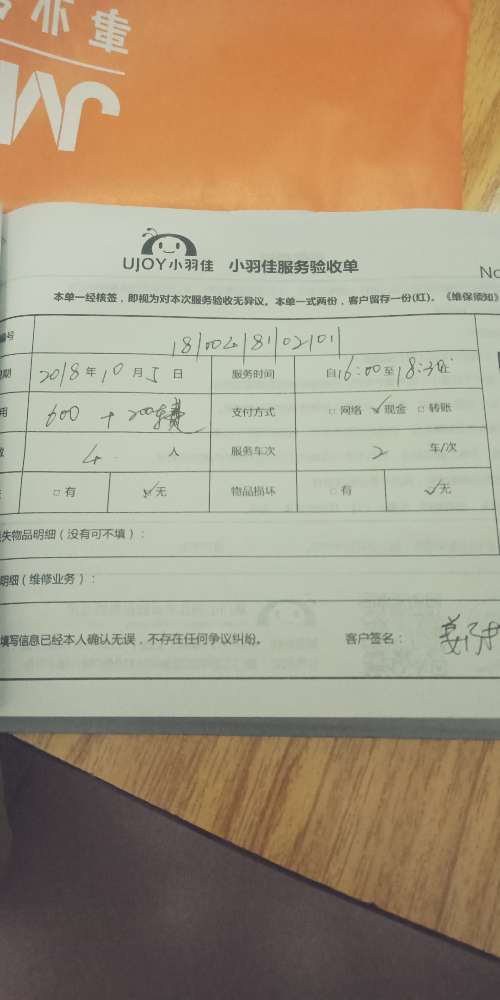 UJOY小羽佳 小羽佳服务验收单
No
本单一经核签，即视为对本次服务验收无异议。本单一式两份，客户留存一份(红)。《维保须知》
编号 18100418110210111
日期 2018年10月5日 服务时间 自16:00至18:30止
用 600 + 200 费 支付方式 □网络 ✓现金 □转账
数 4 人 服务车次 2 车/次
□有 ✓无 物品损坏 □有 ✓无
失物品明细（没有可不填）：
明细（维修业务）：
填写信息已经本人确认无误，不存在任何争议纠纷。 客户签名：